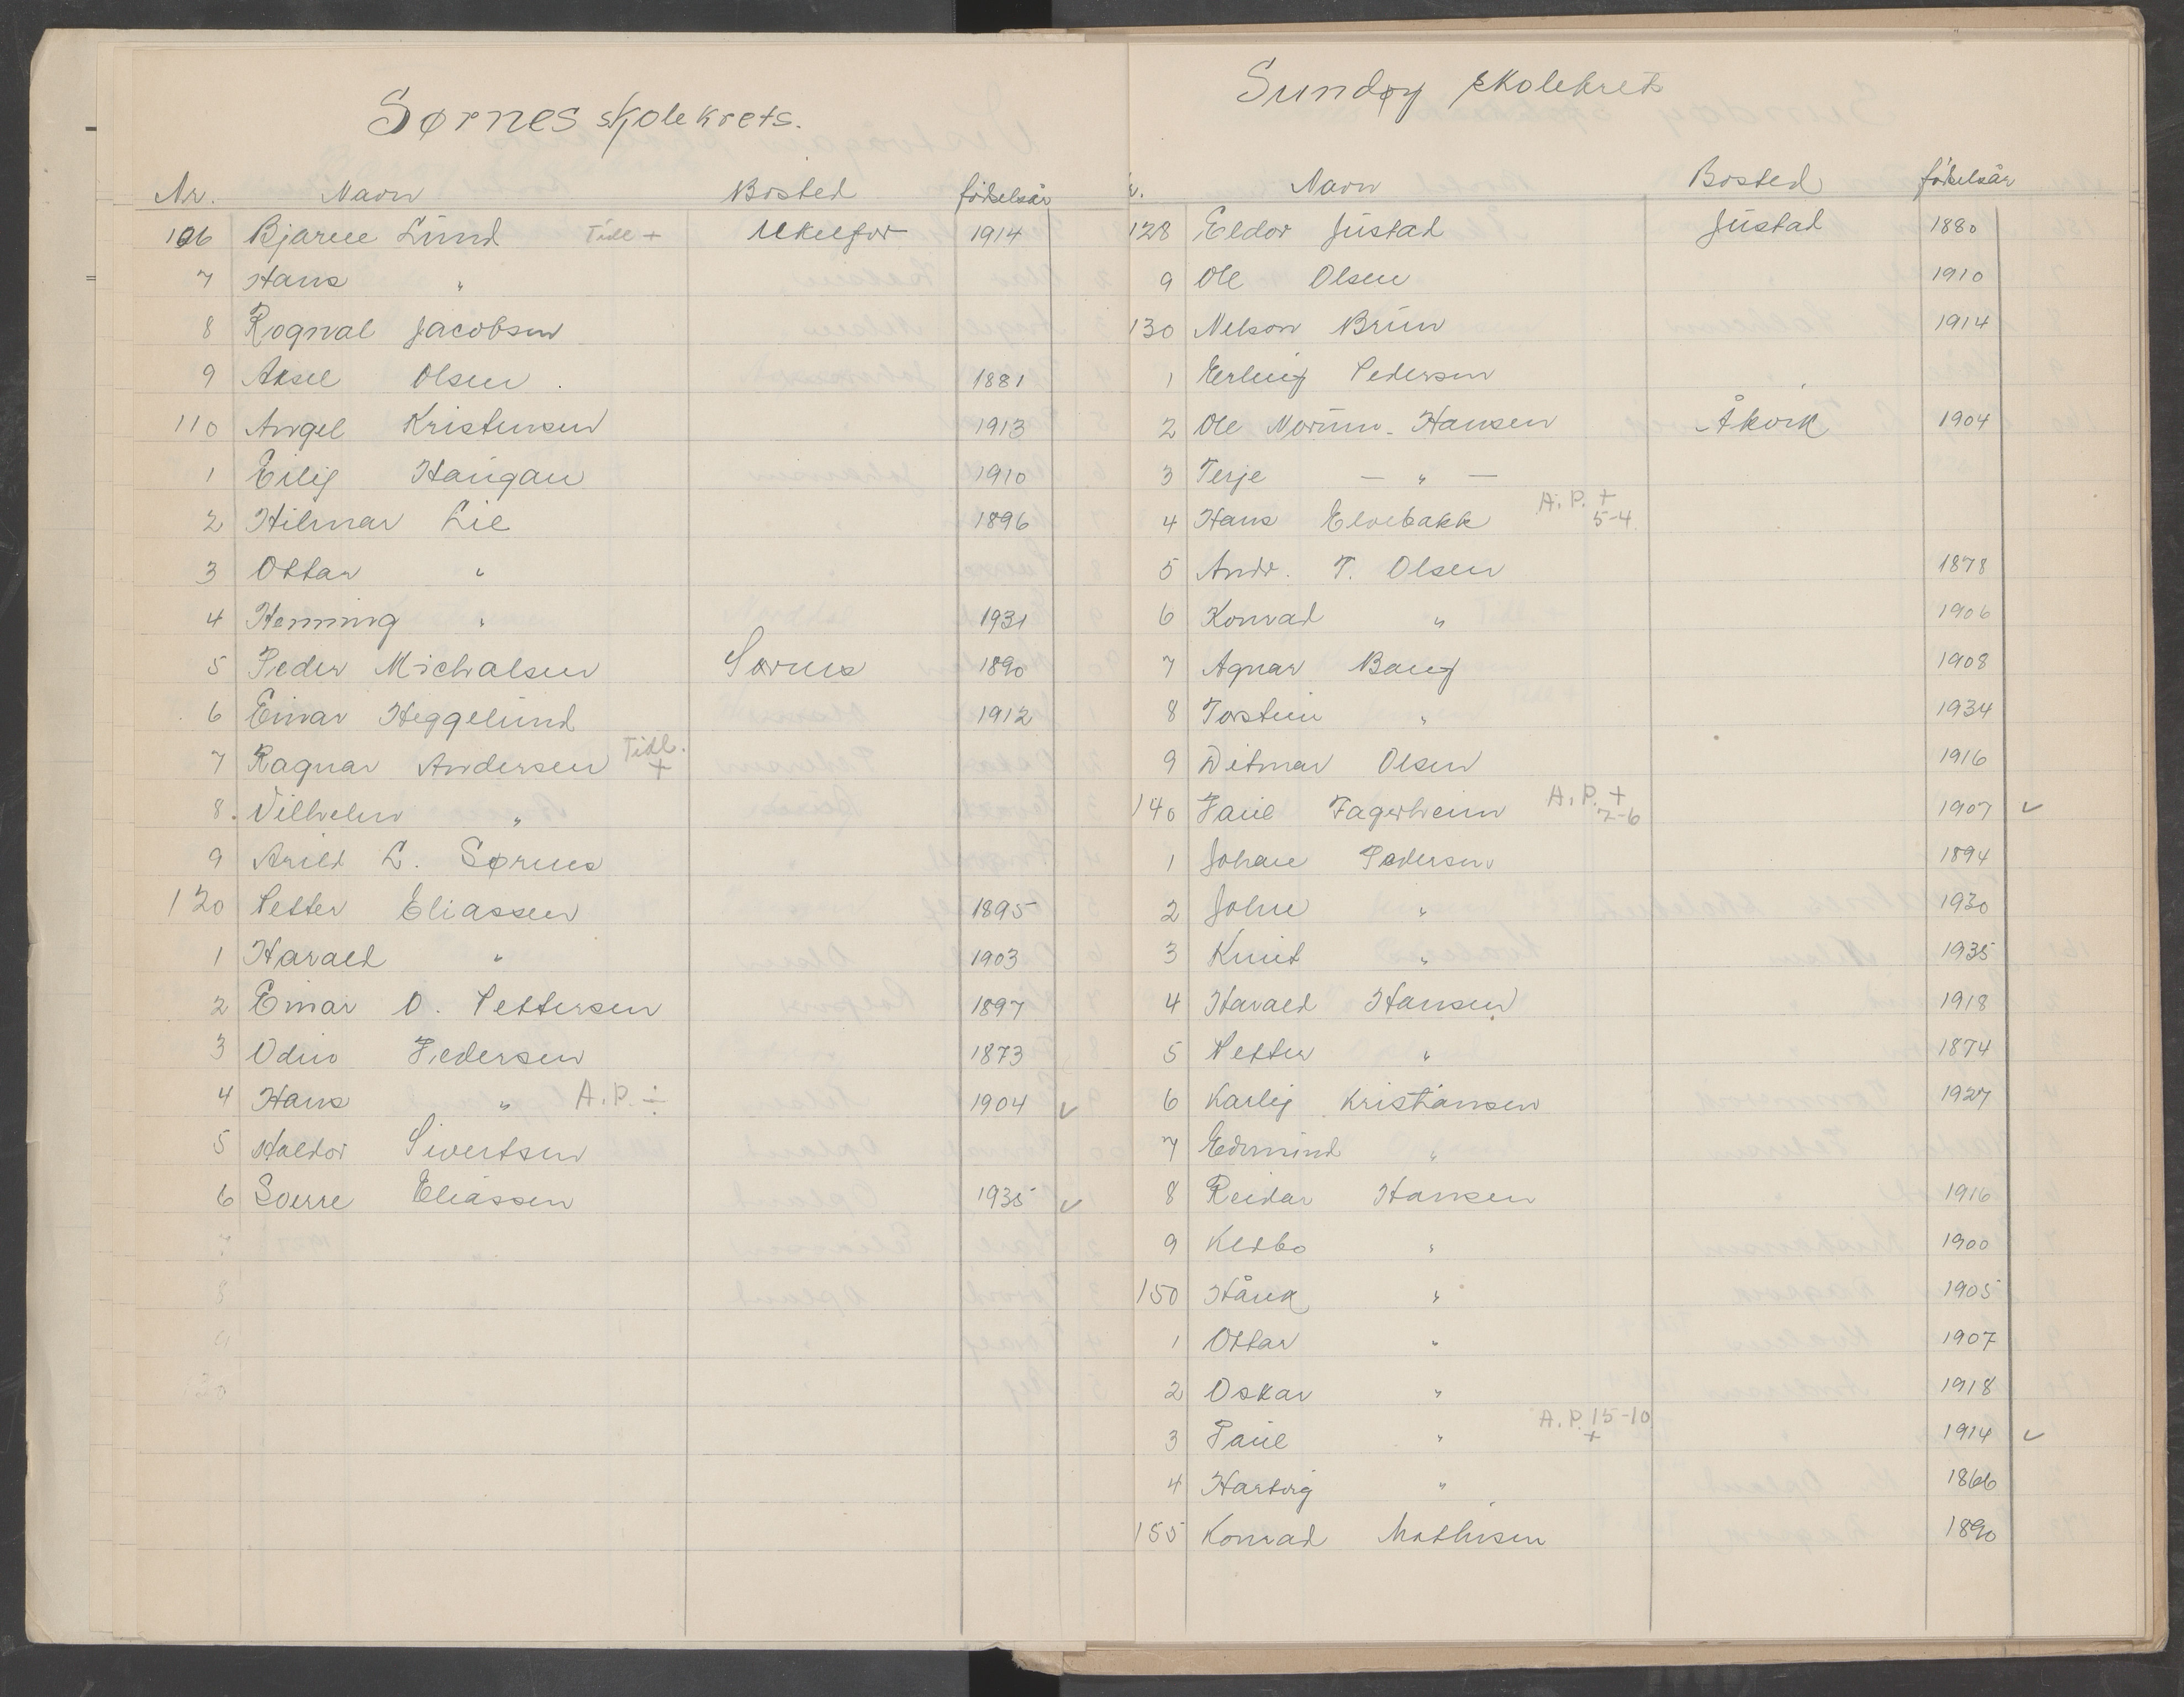 Sørnes skolekrets.
Nr. Navn Bosted fødselsår
106 Bjarne Lund Tidl + 1914
7 Hans "
8 Rognval Jacobsen
9 Aksel Olsen 1881
110 Angel Kristensen 1913
1 Eilif Haugan 1910
2 Hilmar Lie 1896
3 Ottar "
4 Henning " 1931
5 Peder Michalsen Sørnes 1890
6 Einar Heggelund 1912
7 Ragnar Andersen Tidl. +
8. Vilhelm "
9 Arild L. Sørnes
120 Petter Eliassen 1895
1 Harald " 1903
2 Einar O. Pettersen 1897
3 Odin Pedersen 1873
4 Hans " A.P. ÷ 1904 ✓
5 Haldor Sivertsen
6 Sverre Eliassen 1935 ✓
7
8
9
130
Sundøy skolekrets
Navn Bosted fødselsår
128 Eldor Justad Justad 1880
9 Ole Olsen 1910
130 Nelson Brun 1914
1 Erling Pedersen
2 Ole Norum-Hansen Åkvik 1904
3 Terje — " —
4 Hans Elvebakk A.P. + 5-4
5 Andr. T. Olsen 1878
6 Konrad " 1906
7 Agnar Bang 1908
8 Torstein " 1934
9 Ditmar Olsen 1916
140 Paul Fagerheim A.P. + 7-6 1907 ✓
1 Johan Pedersen 1894
2 John " 1930
3 Knut " 1935
4 Harald Hansen 1918
5 Petter " 1874
6 Karlij Kristiansen 1927
7 Edmund "
8 Reidar Hansen 1916
9 " 1900
150 Håua " 1905
1 Ottar " 1907
2 Oskar " 1918
3 Paul " A.P. 15-10 + 1914 ✓
4 Hartvig " 1866
155 Konrad Mathisen 1890